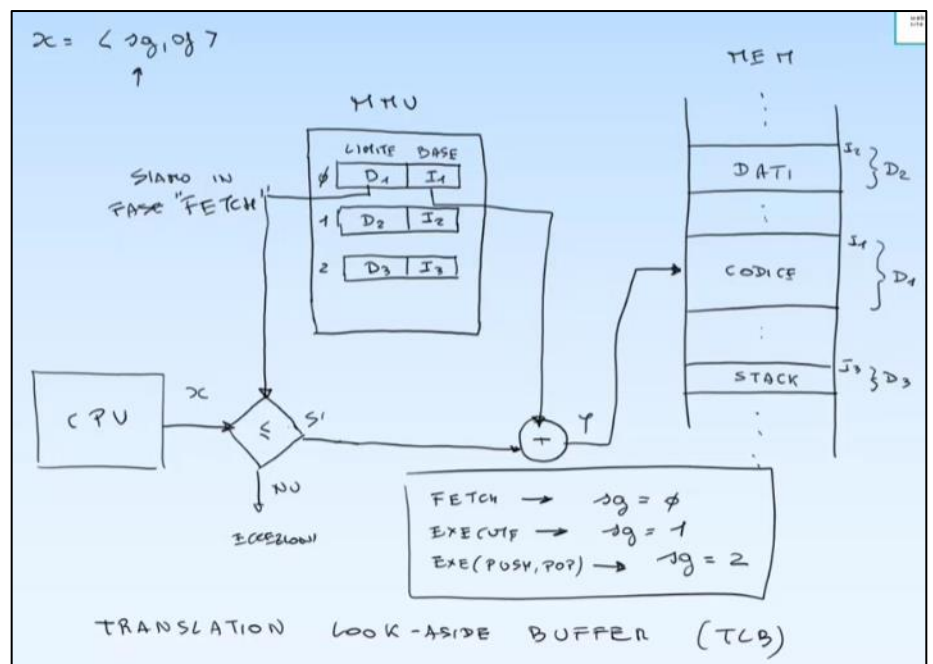 x = < sg, of >
↑
MMU
LIMITE BASE
φ D1 I1
1 D2 I2
2 D3 I3
SIAMO IN
FASE "FETCH"
CPU
x
≤
SI
NO
ECCEZIONI
+
y
MEM
DATI
I2 } D2
CODICE
I1 } D1
STACK
I3 } D3
FETCH → sg = φ
EXECUTE → sg = 1
EXE(PUSH, POP) → sg = 2
TRANSLATION LOOK-ASIDE BUFFER (TLB)